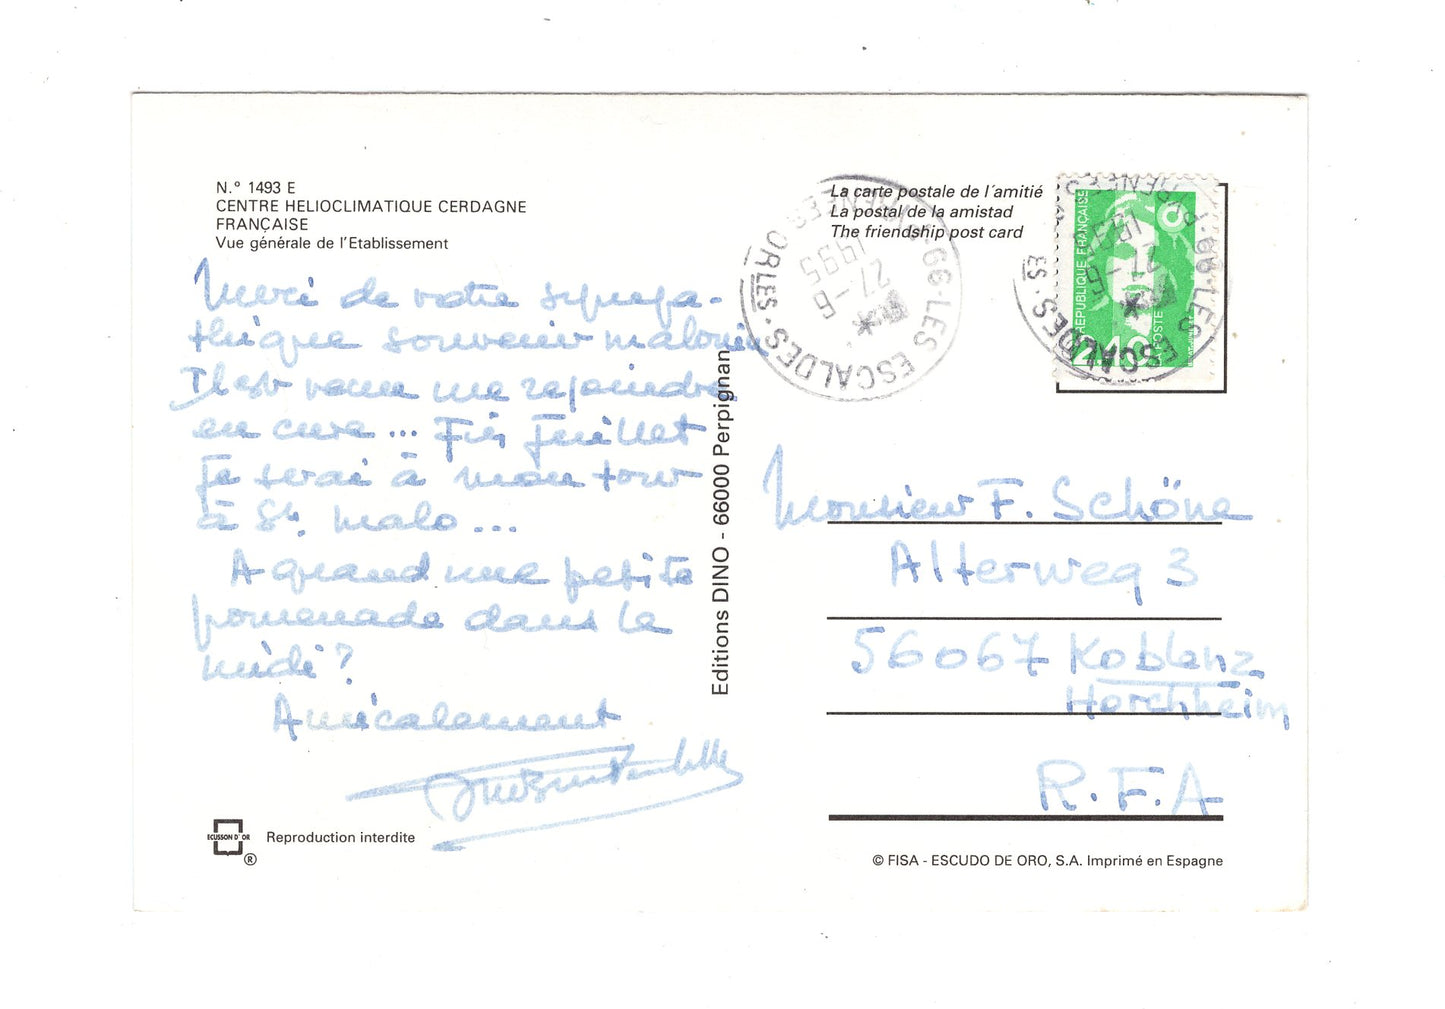 N.° 1493 E
CENTRE HELIOCLIMATIQUE CERDAGNE
FRANÇAISE
Vue générale de l'Etablissement
Merci de votre sympa-
thique souvenir malouin
Il est venu me rejoindre
en cure ... Fin Juillet
Je serai à mon tour
à St. Malo ...
A quand une petite
promenade dans le
midi ?
Amicalement
ECUSSON D'OR
® Reproduction interdite
Editions DINO - 66000 Perpignan
La carte postale de l'amitié
La postal de la amistad
The friendship post card
66·LES ESCALDES·
27-6
1995
RÉPUBLIQUE FRANÇAISE
LA POSTE
2,40
66·LES ESCALDES·
27-6
1995
Monsieur F. Schöne
Alterweg 3
56067 Koblenz
Horchheim
R.F.A
© FISA - ESCUDO DE ORO, S.A. Imprimé en Espagne